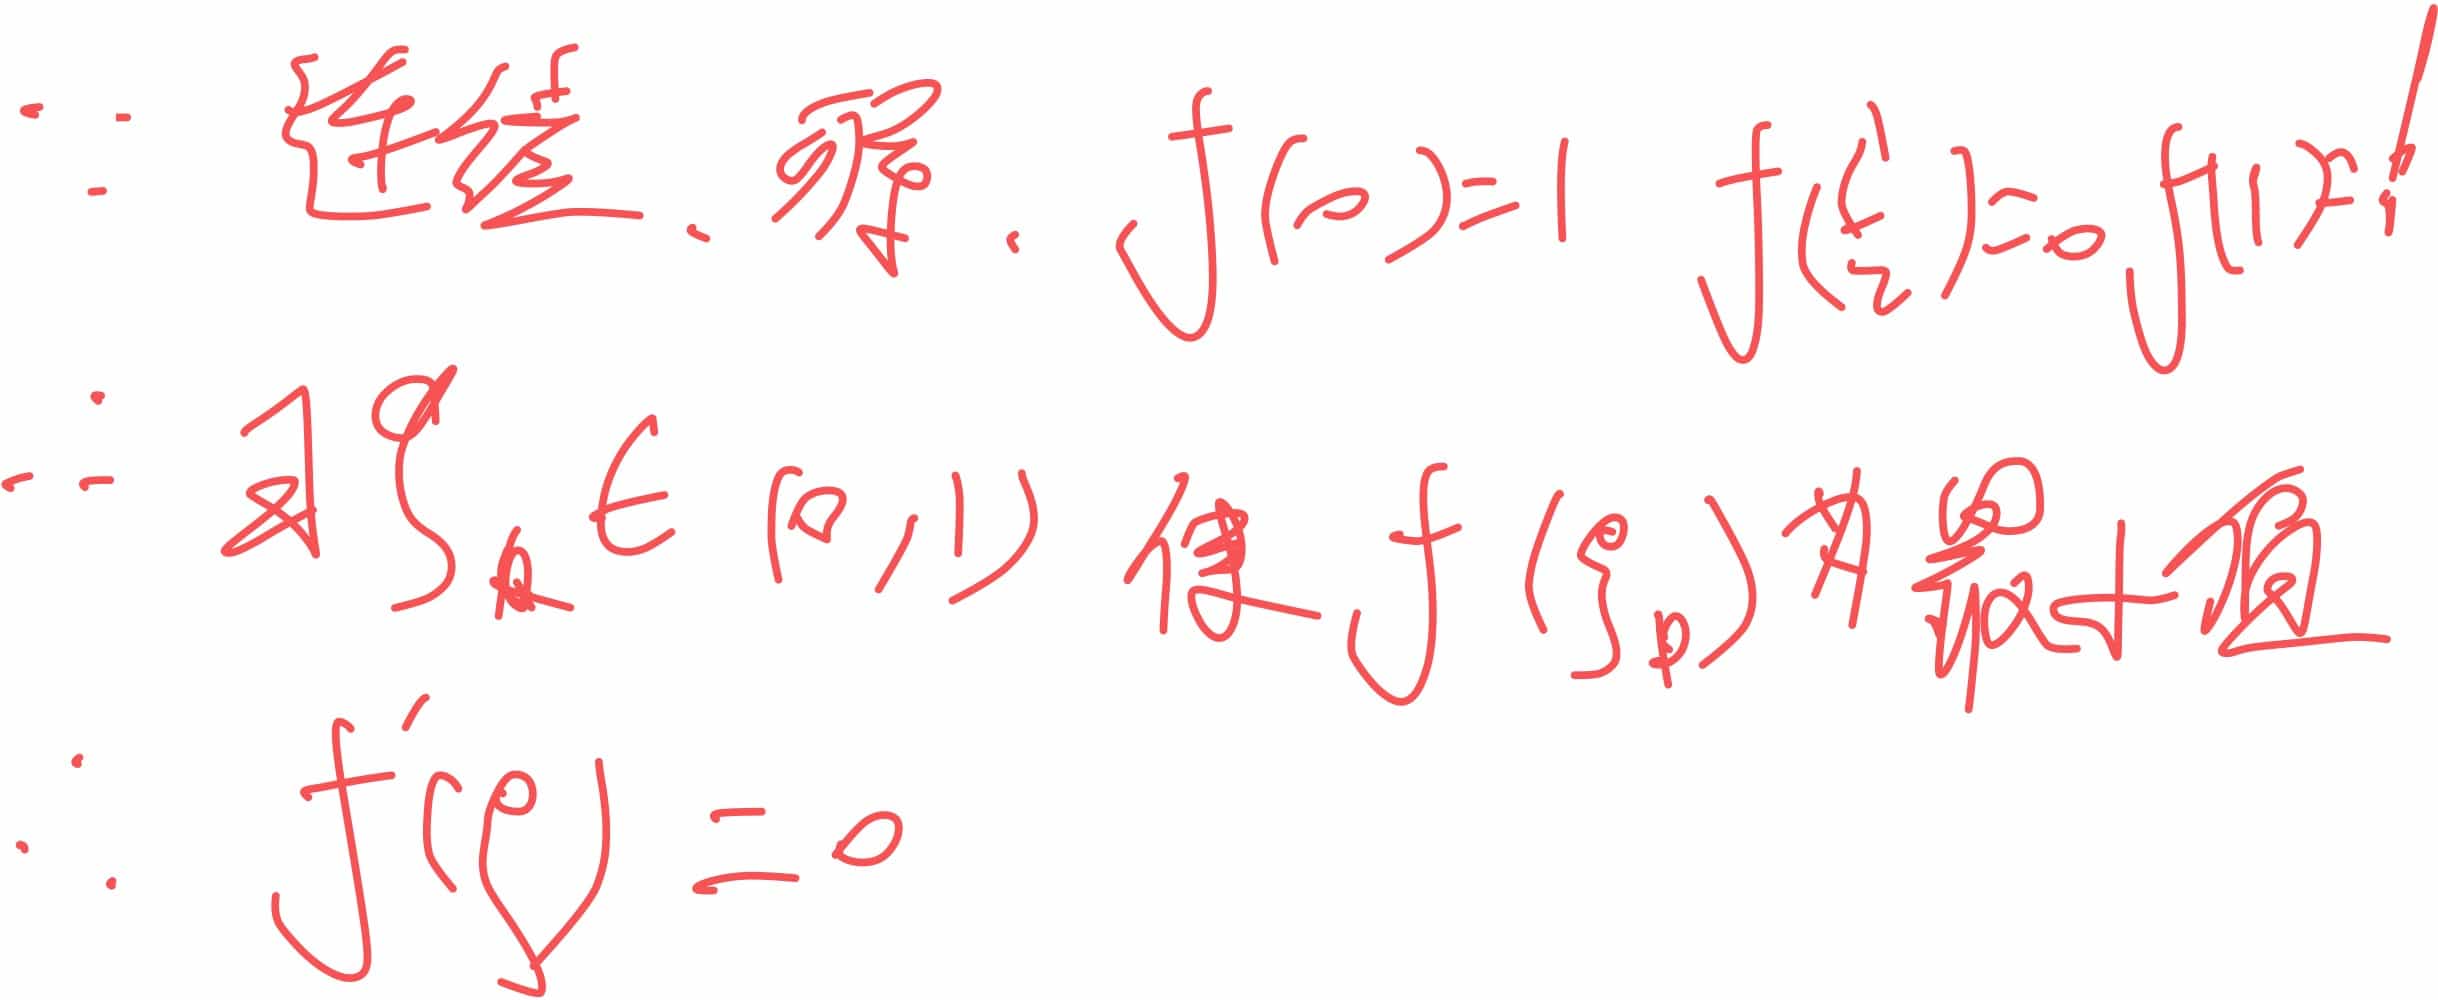 ∵ 连续、可导. f(0)=1 f(½)=0 f(1)=
∴ ∃ξ ∈ (0,1) 使f(ξ)为最小值
∴ f'(ξ)=0